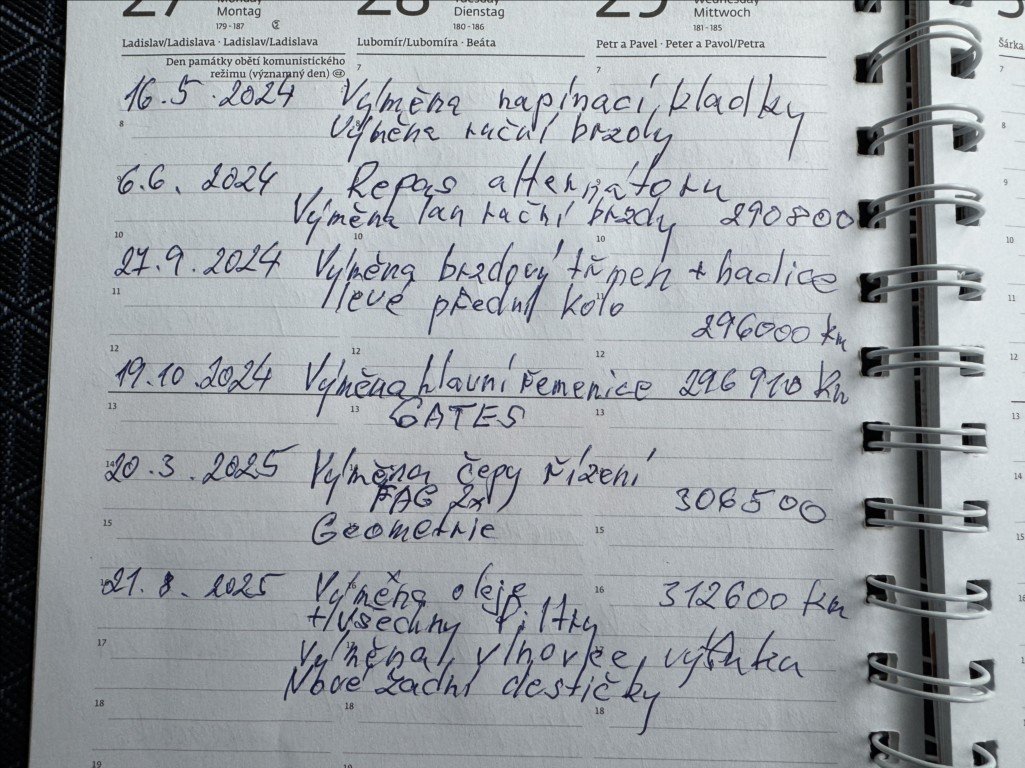 27 Monday 28 Tuesday 29 Wednesday
Montag Dienstag Mittwoch
179 - 187 180 - 186 181 - 185
Ladislav/Ladislava · Ladislav/Ladislava Lubomír/Lubomíra · Beáta Petr a Pavel · Peter a Pavol/Petra Šárka
Den památky obětí komunistického
režimu (významný den)
16.5.2024 Výměna napínací kladky
Výměna ruční brzdy
6.6. 2024 Repas alternátoru
Výměna lan ruční brzdy 290800
27.9.2024 Výměna brzdový třmen + hadice
levé přední kolo
296000 km
19.10.2024 Výměna hlavní řemenice 296910 km
GATES
20.3.2025 Výměna čepy řízení
FAG 2x 306500
Geometrie
21.8.2025 Výměna oleje 312600 km
+ všechny filtry
Výměna vlnovce výfuku
Nové zadní destičky